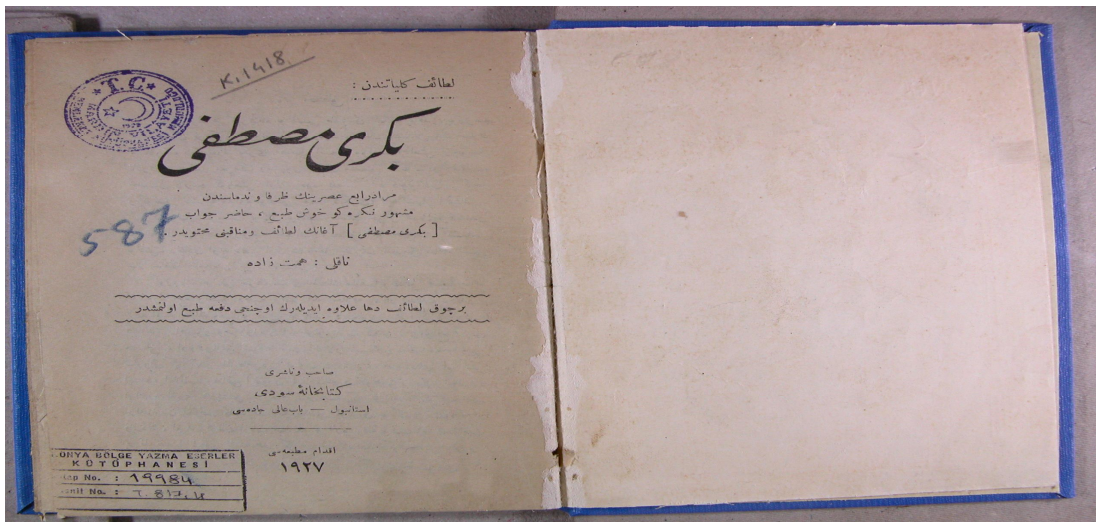 K.1418
لطائف کلیاتندن :
T.C.
بکری مصطفی
مرادرابع عصرینك ظرفا وندماسندن
مشهور نکره کو خوش طبع ، حاضر جواب
[ بکری مصطفی ] آغانك لطائف ومناقبنی محتویدر .
587
ناقلی : عصمت زاده
برچوق لطائف دها علاوه ایدیله‌رك اوچنجی دفعه طبع اولنمشدر
صاحب وناشری
کتابخانهٔ سودی
استانبول — باب عالی جاده‌سی
اقدام مطبعه‌سی
۱۹۲۷
KONYA BÖLGE YAZMA ESERLER
KÜTÜPHANESİ
No. : 19984
No. : T. 817.4